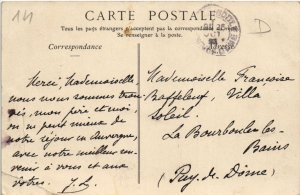 14
CARTE POSTALE
D
Tous les pays étrangers n'acceptent pas la correspondance
Se renseigner à la poste.
Correspondance
Adresse
Merci Mademoiselle
nous nous sommes trou-
vés, mon père et moi
on ne peut mieux de
notre séjour en Auvergne,
avec notre meilleur sou-
venir à vous et aux
vôtres. J. L.
Mademoiselle Françoise
Villa
Soleil
La Bourboule les-
Bains
(Puy. de. Dôme)